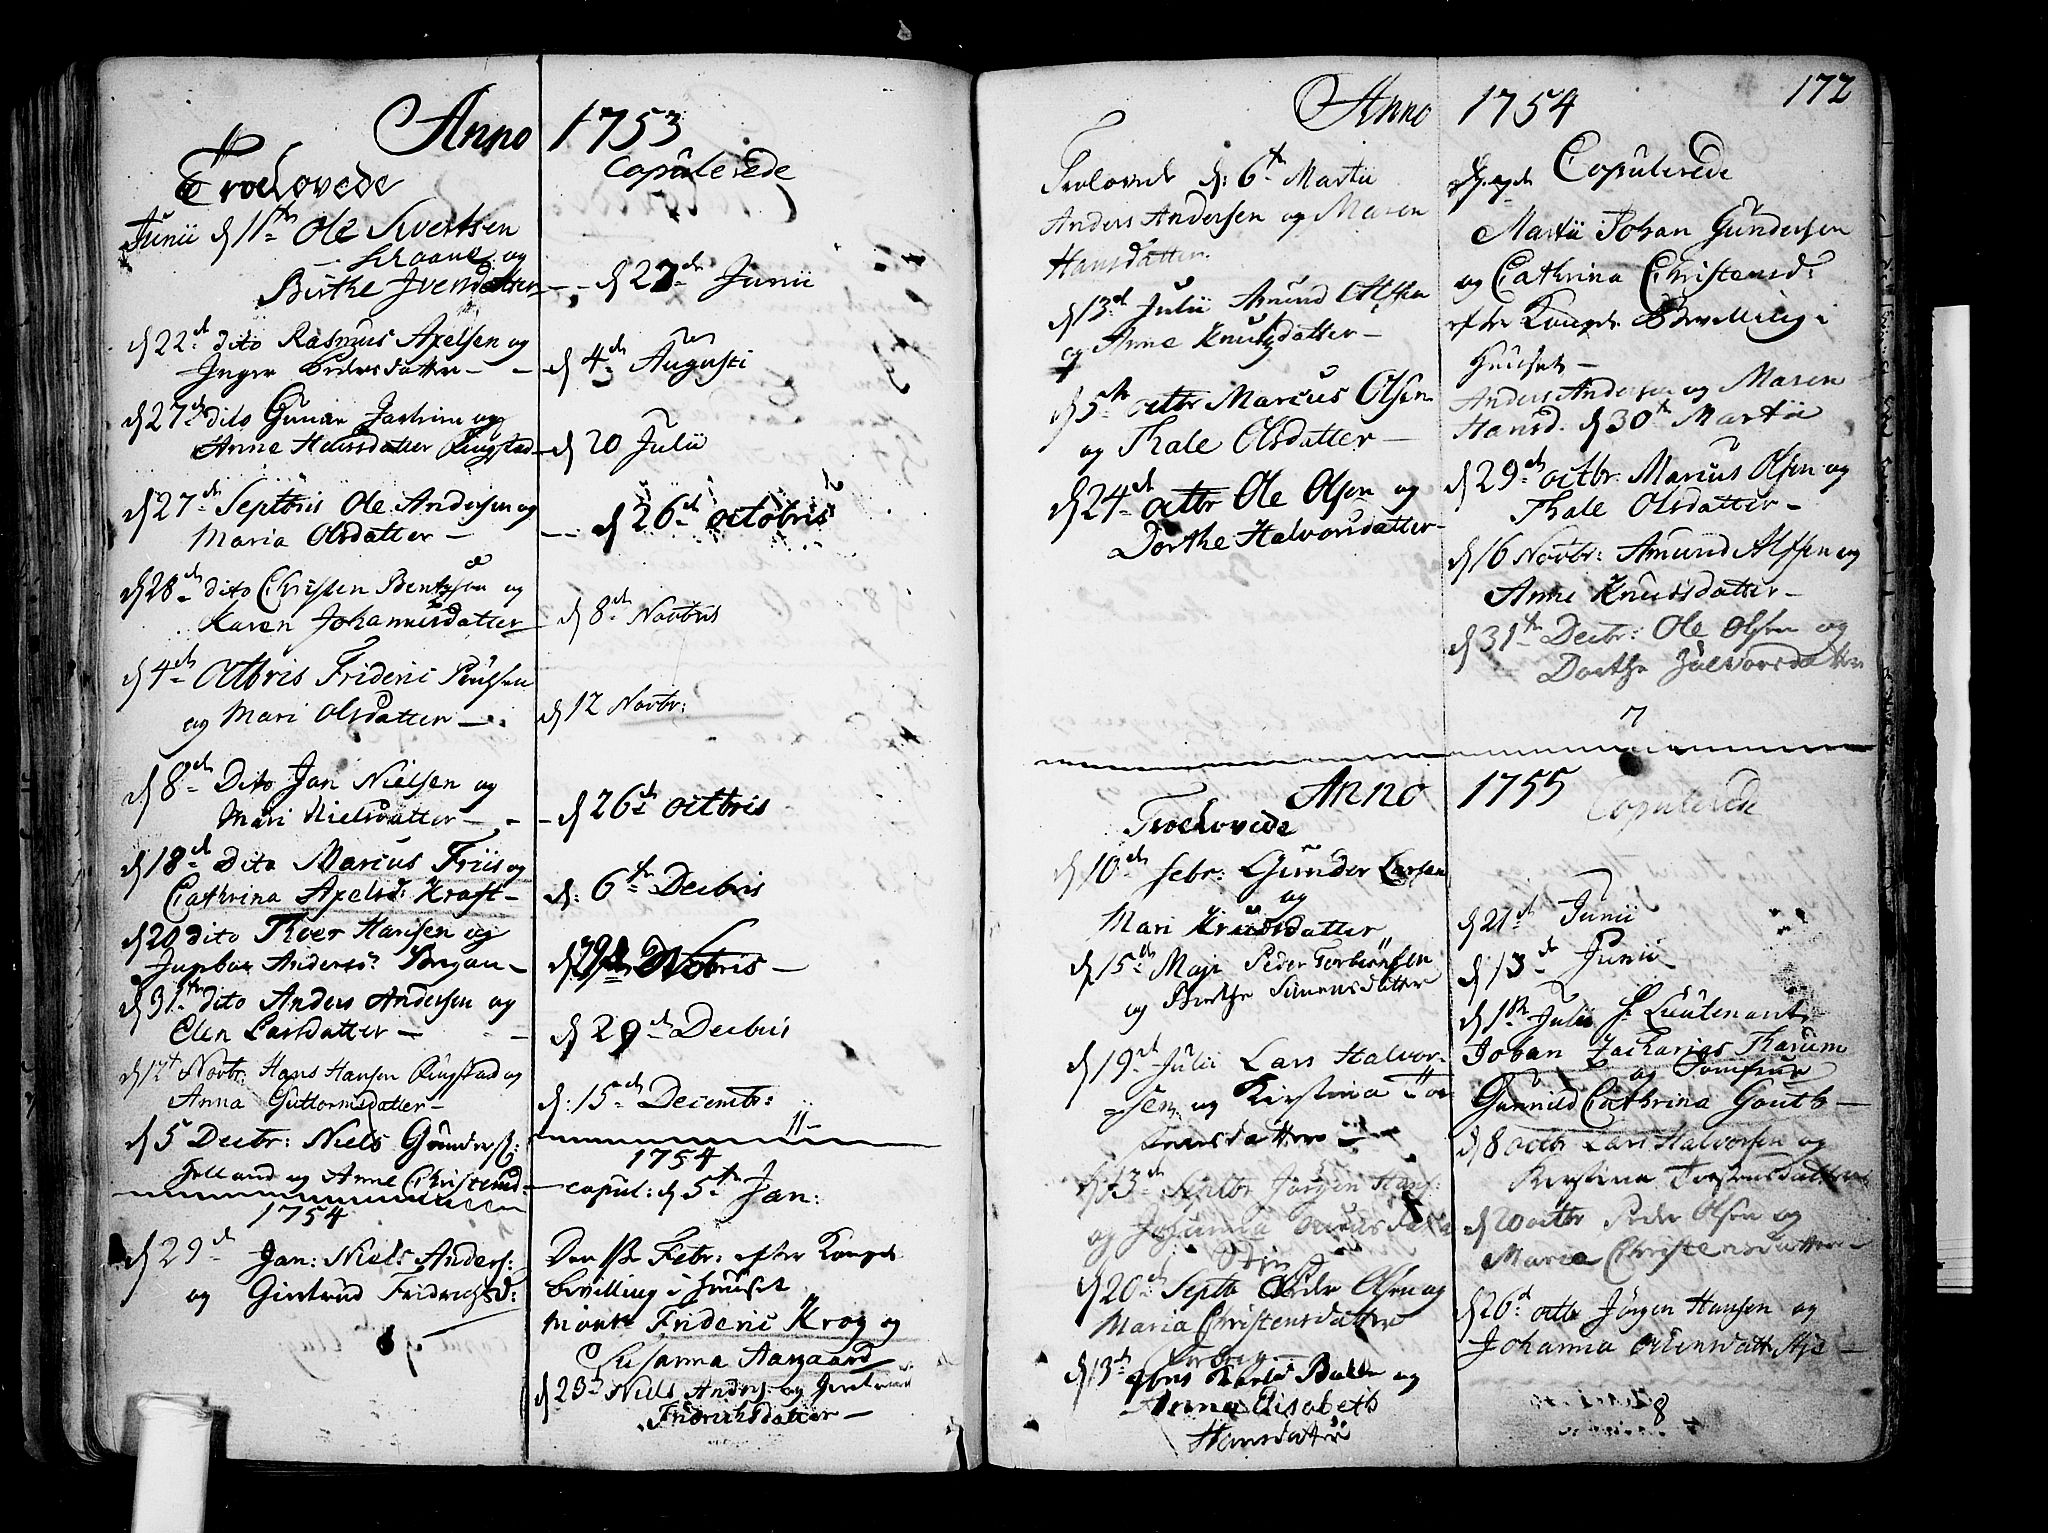 Anno 1753
Troelovede
Junii d 11te Ole Sivertsen
og
Birthe Iversdatter
d 22de dito Rasmus Axelsen og
Inger Pedersdatter
d 27de dito Gunar og
Anne Hansdatter Ringstad
d 27de Septbris Ole Andersen og
Maria Olsdatter
d 28de dito Christen Bentzen og
Karen Johannesdatter
d 4de Octbris Frideric Poulsen
og Mari Olsdatter
d 8de Dito Jan Nielsen og
Mari Nielsdatter
d 18de dito Marcus Friis og
Cathrina Axelsd: Kraft
d 20 dito Thoer Hansen og
Ingebor Andersd:
d 31te dito Anders Andersen og
Elen Larsdatter
d 12te Novbr: Hans Hansen Ringstad og
Anna Guttormsdatter
d 5 Decbr: Niels Gunders:
og Anne Christensd:
1754
d 29de Jan: Niels Anders:
og Giertrud Fridrichsd:
Copulerede
d 22de Junii
d 4de Augusti
d 20 Julii
d 26de octobris
d 8de Novbris
d 12 Novbr:
d 26de octbris
d: 6te Decbris
Novbris
d 29de Decbris
d: 15de Decembr:
11
1754
copul: d 5te Jan:
Den Febr: efter Kongel
bevilling i Huuset
Frideric Krog og
Susanna Aargaard
d 23de Niels Anders: og
Fridrichsdatter
172
Anno 1754
Trolovede d: 6te Martii
Anders Andersen og Maren
Hansdatter
d 13de Julii Amund Alfsen
og Anne Knudsdatter
d 5te octbr Marcus Olsen
og Thale Olsdatter
d 24de octbr Ole Olsen og
Dorthe Halvorsdatter
Copulerede
Martii Johan Gundersen
og Cathrina Christensd:
efter Kongel Bevilling i
Huuset
Anders Andersen og Maren
Hansd. d 30te Martii
d 29de octbr. Marcus Olsen og
Thale Olsdatter
d 16 Novbr: Amund Alfsen og
Anne Knudsdatter
d 31te Decbr: Ole Olsen og
Dorthe Halvorsdatter
7
Anno 1755
Troelovede
d 10de febr: Gunder Larsen
og
Mari Knudsdatter
d 15de Maji Peder Torbiørnsen
og Birthe Simensdatter
d 19de Julii Lars Halvor-
sen og Kirstina Tor-
stensdatter
d 13de Septbr Jørgen Hans:
og Johanna
d 20de Septb Peder Olsen og
Maria Christensdatter
d 13de
Balle og
Anna Elisabeth
Hansdatter
Copulerede
d 21de Junii
d 13de Junii
d 1ste Julii Hr Lieutenant
Johan Zacharias Tharum
og Jomfrue
Gunnild Cathrina Gouth
d 8 octbr Lars Halvorsen og
Kirstina Torstensdatter
d 20 octbr Peder Olsen og
Maria Christensdatter
d 26de octb Jørgen Hansen og
Johanna
8